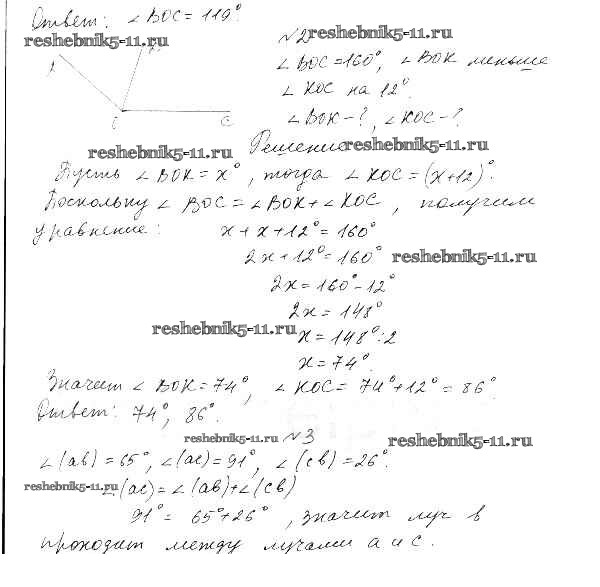 Ответ: ∠BOC = 119°.
reshebnik5-11.ru
№2
reshebnik5-11.ru
∠BOC = 160°, ∠BOK меньше
∠KOC на 12°.
∠BOK - ?, ∠KOC - ?
O C
reshebnik5-11.ru Решение reshebnik5-11.ru
Пусть ∠BOK = x°, тогда ∠KOC = (x+12)°.
Поскольку ∠BOC = ∠BOK + ∠KOC, получим
уравнение: x + x + 12° = 160°
2x + 12° = 160° reshebnik5-11.ru
2x = 160° - 12°
2x = 148°
reshebnik5-11.ru x = 148° : 2
x = 74°.
Значит ∠BOK = 74°, ∠KOC = 74° + 12° = 86°
Ответ: 74°, 86°.
reshebnik5-11.ru №3 reshebnik5-11.ru
∠(ab) = 65°, ∠(ac) = 91°, ∠(cb) = 26°.
reshebnik5-11.ru ∠(ac) = ∠(ab) + ∠(cb)
91° = 65° + 26°, значит луч b
проходит между лучами a и c.